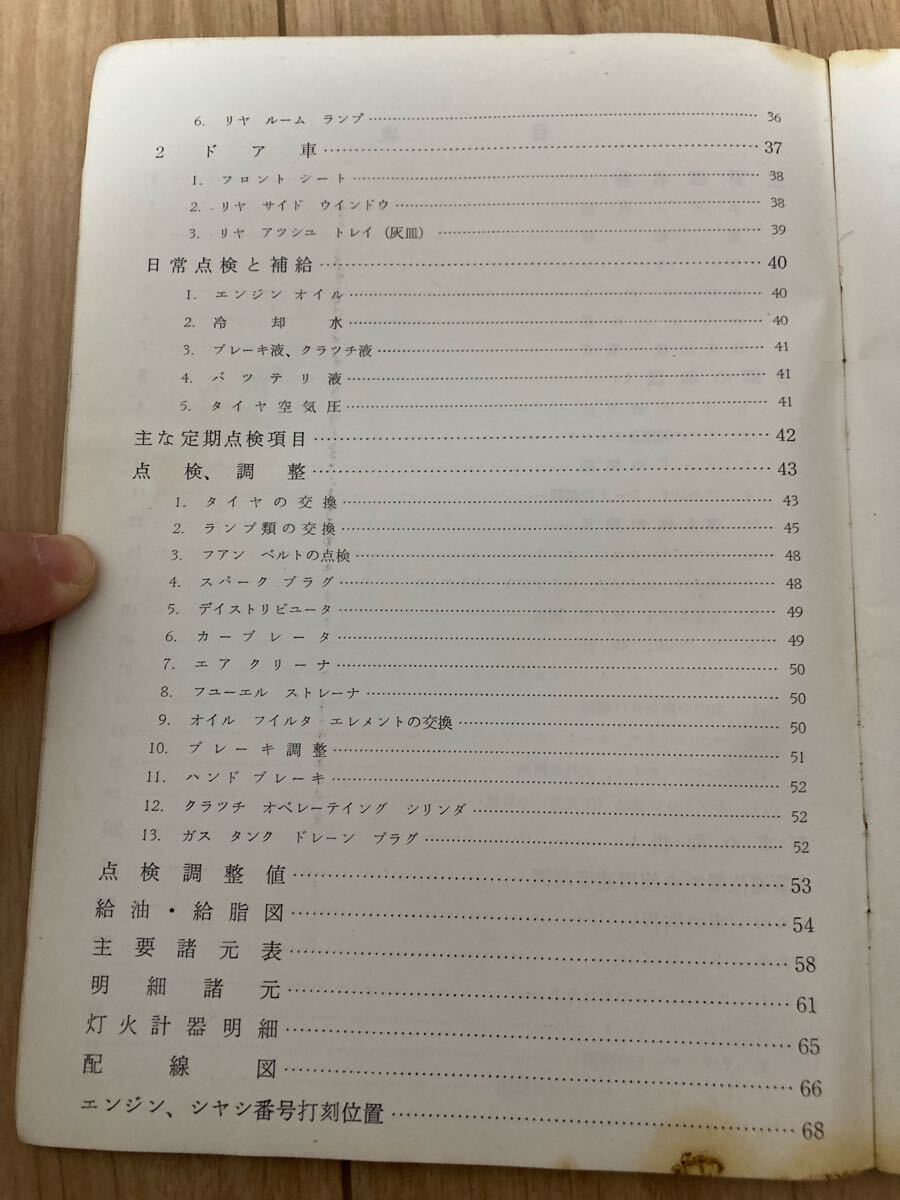 6. リヤ ルーム ランプ………36
2 ド ア 車………37
1. フロント シート………38
2. リヤ サイド ウインドウ………38
3. リヤ アツシユ トレイ (灰皿)………39
日常点検と補給………40
1. エンジン オイル………40
2. 冷 却 水………40
3. ブレーキ液、クラツチ液………41
4. バ ツ テ リ 液………41
5. タ イ ヤ 空 気 圧………41
主な定期点検項目………42
点 検、調 整………43
1. タ イ ヤ の 交 換………43
2. ランプ類の交換………45
3. フアン ベルトの点検………48
4. スパーク プラグ………48
5. デイストリビユータ………49
6. カ ー ブ レ ー タ………49
7. エ ア ク リ ー ナ………50
8. フユーエル ストレーナ………50
9. オイル フイルタ エレメントの交換………50
10. ブ レ ー キ 調 整………51
11. ハ ン ド ブ レ ー キ………52
12. クラツチ オペレーテイング シリンダ………52
13. ガス タンク ドレーン プラグ………52
点 検 調 整 値………53
給 油 ・ 給 脂 図………54
主 要 諸 元 表………58
明 細 諸 元………61
灯 火 計 器 明 細………65
配 線 図………66
エンジン、シヤシ番号打刻位置………68